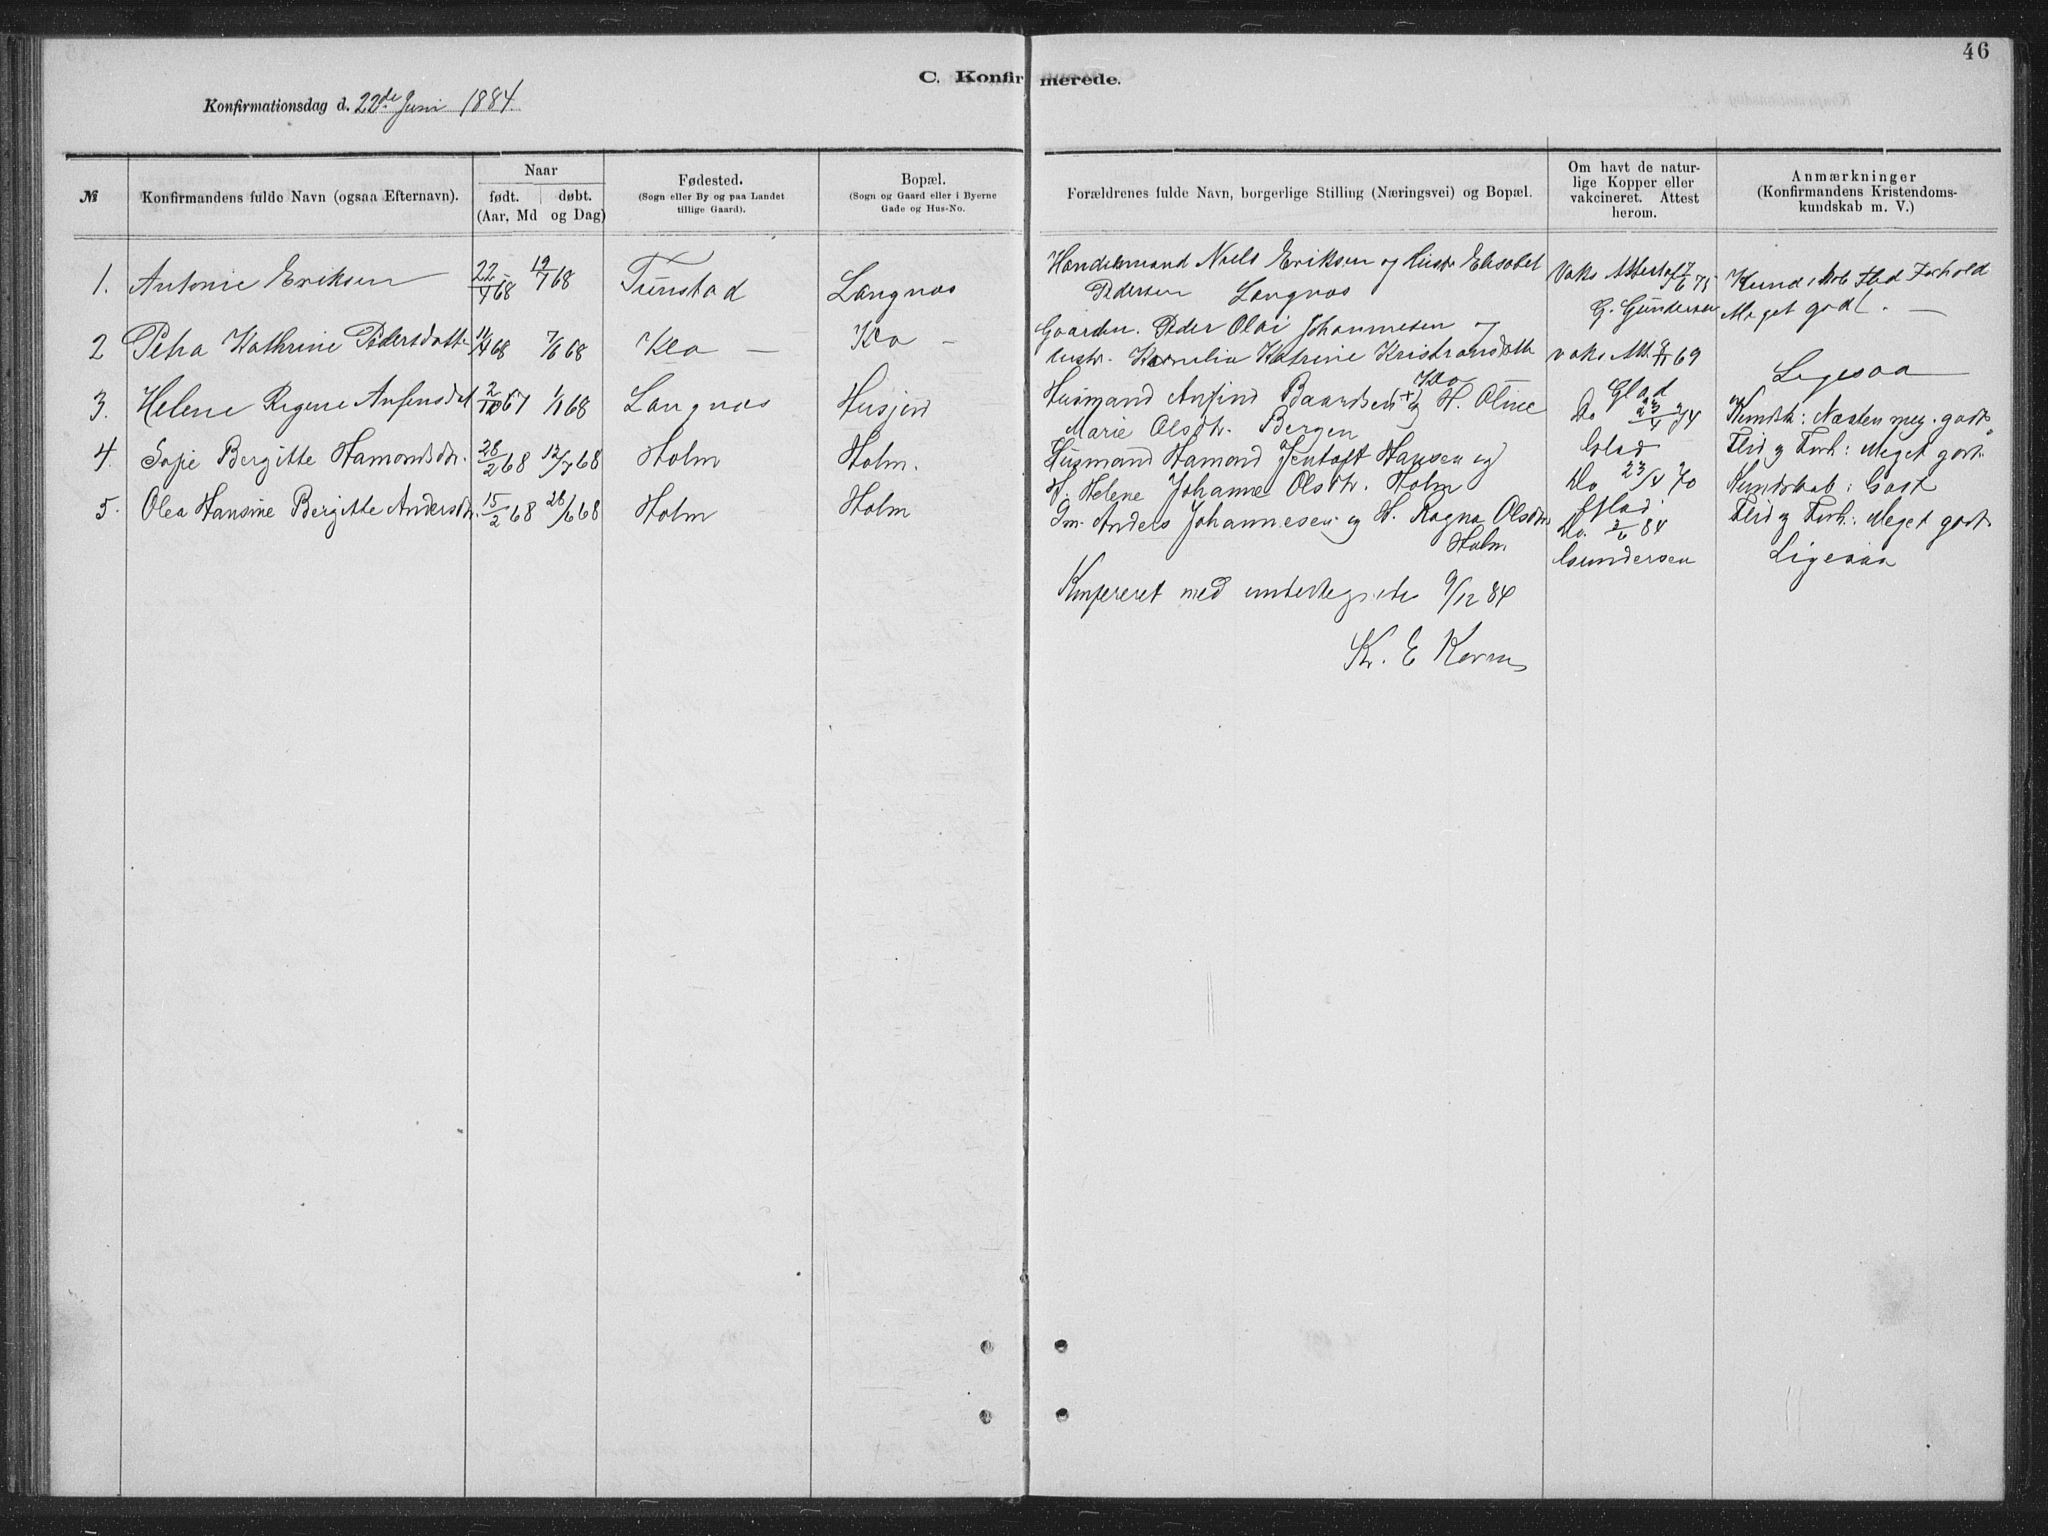 46
C. Konfirmerede.
Konfirmationsdag d. 22de Juni 1884.
№ Konfirmandens fulde Navn (ogsaa Efternavn). Naar født. døbt. (Aar, Md og Dag) Fødested. (Sogn eller By og paa Landet tillige Gaard). Bopæl. (Sogn og Gaard eller i Byerne Gade og Hus-No.
Forældrenes fulde Navn, borgerlige Stilling (Næringsvei) og Bopæl. Om havt de naturlige Kopper eller vakcineret. Attest herom. Anmærkninger (Konfirmandens Kristendomskundskab m. V.)
1. Antonie Eriksen 22/4 68 19/7 68 Tunstad Langnæs
Handelsmand Niels Eriksen og Hustr Elisabet
Pedersen Langnæs
Vaks Attest af 7/6 75
G. Gundersen
Flid Forhold
Meget godt. —
2 Petra Kathrine Pedersdatter 11/4 68 7/6 68 Klo — Klo —
Gaardm. Peder Olai Johannesen og
Hustr. Kornelia Katrine Kristiansdatter
Klo —
vaks Att. 9/11 69
Glad
Ligesaa
3. Helene Regine Anfinsdat 2/10 67 1/1 68 Langnæs Husjord
Husmand Anfind Baardsen og H. Oline
Marie Olsdtr. Bergen
Do 23/4 74
Glad
Kundsk: Næsten meg. godt
Flid og Forh: Meget godt.
4. Sofie Bergitte Hamondsdtr. 28/2 68 12/7 68 Holm Holm.
Husmand Hamond Jentoft Hansen og
H. Helene Johanne Olsdtr. Holm
Do 23/4 70
Glad
Kundskab: Godt
Flid og Forh: Meget godt
5. Olea Hansine Bergitte Andersdtr. 15/2 68 28/6 68 Holm Holm
Gm. Anders Johannesen og H. Ragna Olsdtr.
Holm.
Do. 2/6 84
Gundersen
Ligesaa
Konfereret med undertegnede 9/12 84
Kr. E